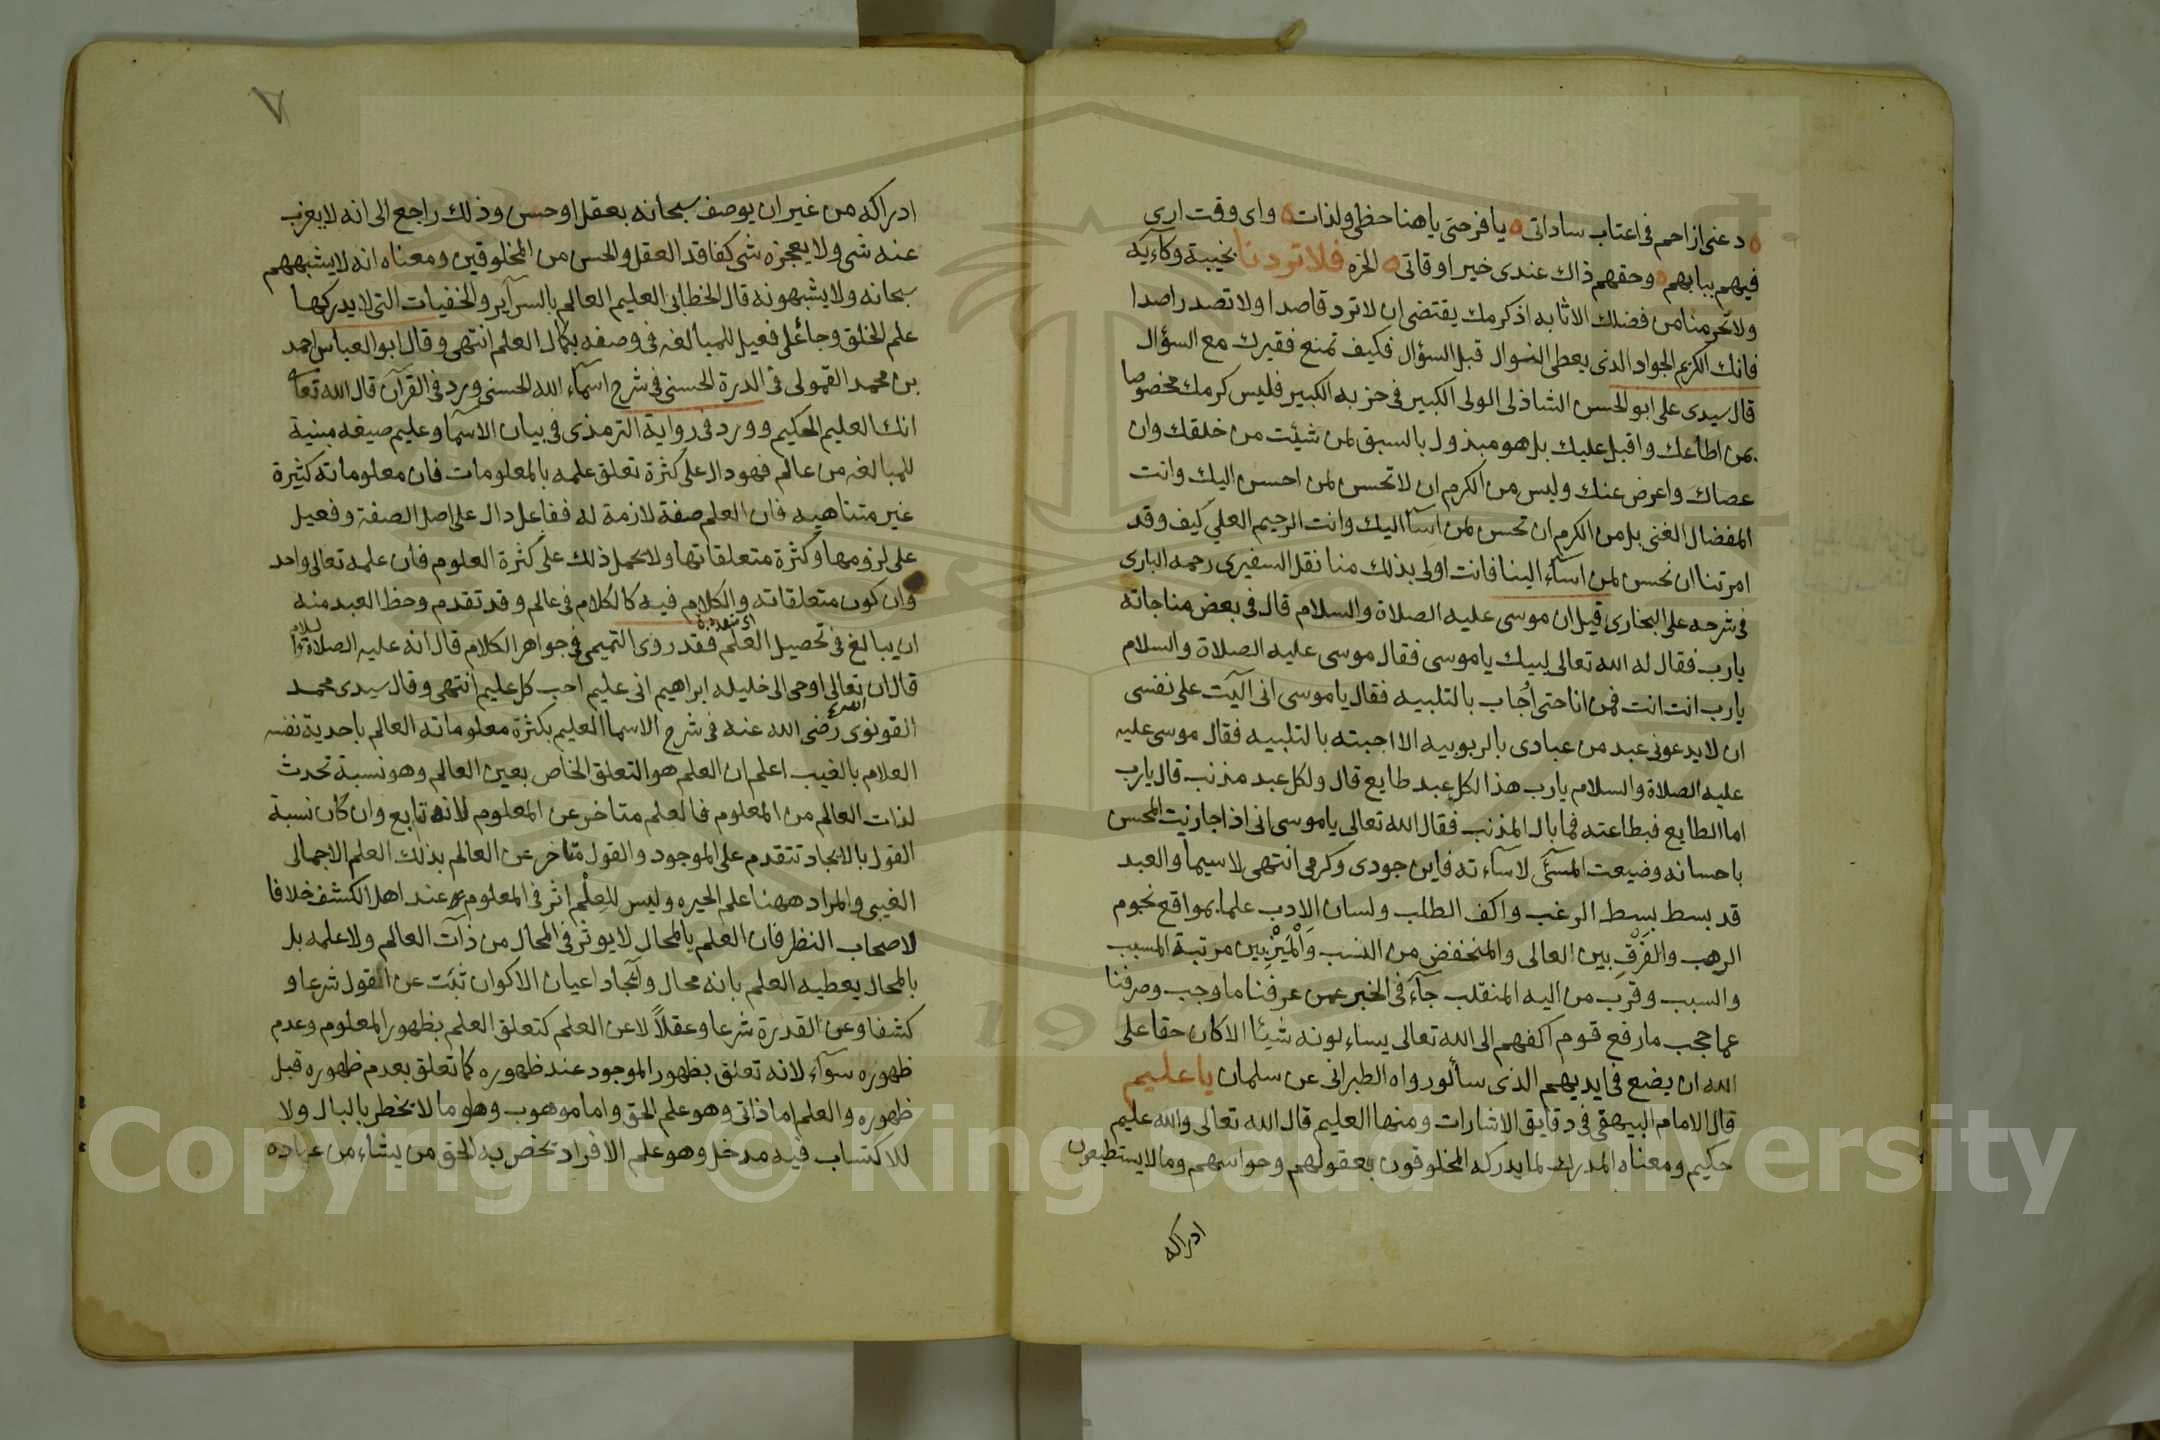 دعنى ازاحم فى اعتاب ساداتى يا فرحتى يا هنا حظى ولذات واى وقت ارى
فيهم ببابهم وحقهم ذاك عندى خير اوقاتى الخره فلا تردنا بخيبة وكآيه
ولا تحرمنا من فضلك الاثابه اذ كرمك يقتضى ان لا ترد قاصدا ولا تصد راصدا
فانك الكريم الجواد الذى يعطى النوال قبل السؤال فكيف تمنع فقيرك مع السؤال
قال سيدى على ابو الحسن الشاذلى الولى الكبير فى حزبه الكبير فليس كرمك مخصوصا
بمن اطاعك واقبل عليك بل هو مبذول بالسبق لمن شئت من خلقك وان
عصاك واعرض عنك وليس من الكرم ان لا تحسن لمن احسن اليك وانت
المفضال الغنى بل من الكرم ان تحسن لمن اسآ اليك وانت الرحيم العلي كيف وقد
امرتنا ان نحسن لمن اسآء الينا فانت اولى بذلك منا نقل السفيرى رحمه البارى
فى شرحه على البخارى قيل ان موسى عليه الصلاة والسلام قال فى بعض مناجاته
يارب فقال له الله تعالى لبيك يا موسى فقال موسى عليه الصلاة والسلام
يارب انت انت فمن انا حتى اُجاب بالتلبيه فقال يا موسى انى اليت على نفسى
ان لا يدعونى عبد من عبادى بالربوبيه الا اجبته بالتلبيه فقال موسى عليه
عليه الصلاة والسلام يارب هذا لكل عبد طايع قال ولكل عبد مذنب قال يارب
اما الطايع فبطاعته فما بال المذنب فقال الله تعالى يا موسى انى اذا جازيت المحسن
باحسانه وضيعت المسئ لاسآءته فاين جودى وكرمى انتهى لا سيما والعبد
قد بسط بسط الرغب واكف الطلب ولسان الادب علما بمواقع نجوم
الرهب والفَرْقِ بين العالى والمنخفض من النسب وَالْمَيْزِ بين مرتبة المسبب
والسبب وقرب من اليه المنقلب جآء فى الخبر عمن عرفنا ما وجب وصرفنا
عما حجب ما رفع قوم اكفهم الى الله تعالى يساءلونه شيئا الا كان حقا على
الله ان يضع فى ايديهم الذى سألو رواه الطبرانى عن سلمان يا عليم
قال الامام البيهقى فى دقايق الاشارات ومنها العليم قال الله تعالى والله عليم
حكيم ومعناه المدرك لما يدركه المخلوقون بعقولهم وحواسهم وما لا يستطيعون
ادراكه
٧
ادراكه من غير ان يوصف سبحانه بعقل او حس وذلك راجع الى انه لا يعزب
عنه شى ولا يعجزه شى كفاقد العقل والحس من المخلوقين ومعناه انه لا يشبههم
سبحانه ولا يشبهونه قال الخطابى العليم العالم بالسرآير والخفيات التى لا يدركها
علم الخلق وجا على فعيل للمبالغه فى وصفه بكمال العلم انتهى وقال ابو العباس احمد
بن محمد القمولى فى الدرة الحسنى فى شرح اسمآء الله الحسنى ورد فى القرآن قال الله تعا
انك العليم الحكيم وورد فى رواية الترمذى فى بيان الاسما وعليم صيغه مبنية
للمبالغه من عالم فهو دال على كثرة تعلق علمه بالمعلومات فان معلوماته كثيرة
غير متناهيه فان العلم صفة لازمة له ففاعل دال على اصل الصفة وفعيل
على لزومها وكثرة متعلقاتها ولا يحمل ذلك على كثرة العلوم فان علمه تعالى واحد
وان كون متعلقاته والكلام فيه كالكلام فى عالم وقد تقدم وحظ العبد منه
ان يبالغ فى تحصيل العلم فقد روى التميمى فى جواهر الكلام قال انه عليه الصلاة والسلام
قال ان تعالى اوحى الى خليله ابراهيم انى عليم احب كل عليم انتهى وقال سيدى محمد
القونوى رضى الله عنه فى شرح الاسما العليم بكثرة معلوماته العالم باحدية نفسه
العلام بالغيب اعلم ان العلم هو التعلق الخاص بعين العالم وهو نسبة تحدث
لذات العالم من المعلوم فالعلم متاخر عن المعلوم لانه تابع وان كان نسبة
القول بالايجاد تتقدم على الموجود والقول متاخر عن العالم بذلك العلم الاجمالى
الغيبى والمراد ههنا علم الحيره وليس للعِلْم اثر فى المعلوم عند اهل الكشف خلافا
لاصحاب النظر فان العلم بالمحال لا يوثر فى المحال من ذات العالم ولا علمه بل
بالمحال يعطيه العلم بانه محال وايجاد اعيان الاكوان ثبت عن القول شرعا و
كشفا وعن القدرة شرعا وعقلاً لا عن العلم كتعلق العلم بظهور المعلوم وعدم
ظهوره سوآء لانه تعلق بظهور الموجود عند ظهوره كما تعلق بعدم ظهوره قبل
ظهوره والعلم اما ذاتى وهو علم الحق واما موهوب وهو ما لا يخطر بالبال ولا
للاكتساب فيه مدخل وهو علم الافراد تخص به الحق من يشاء من عباده
Copyright © King Saud University